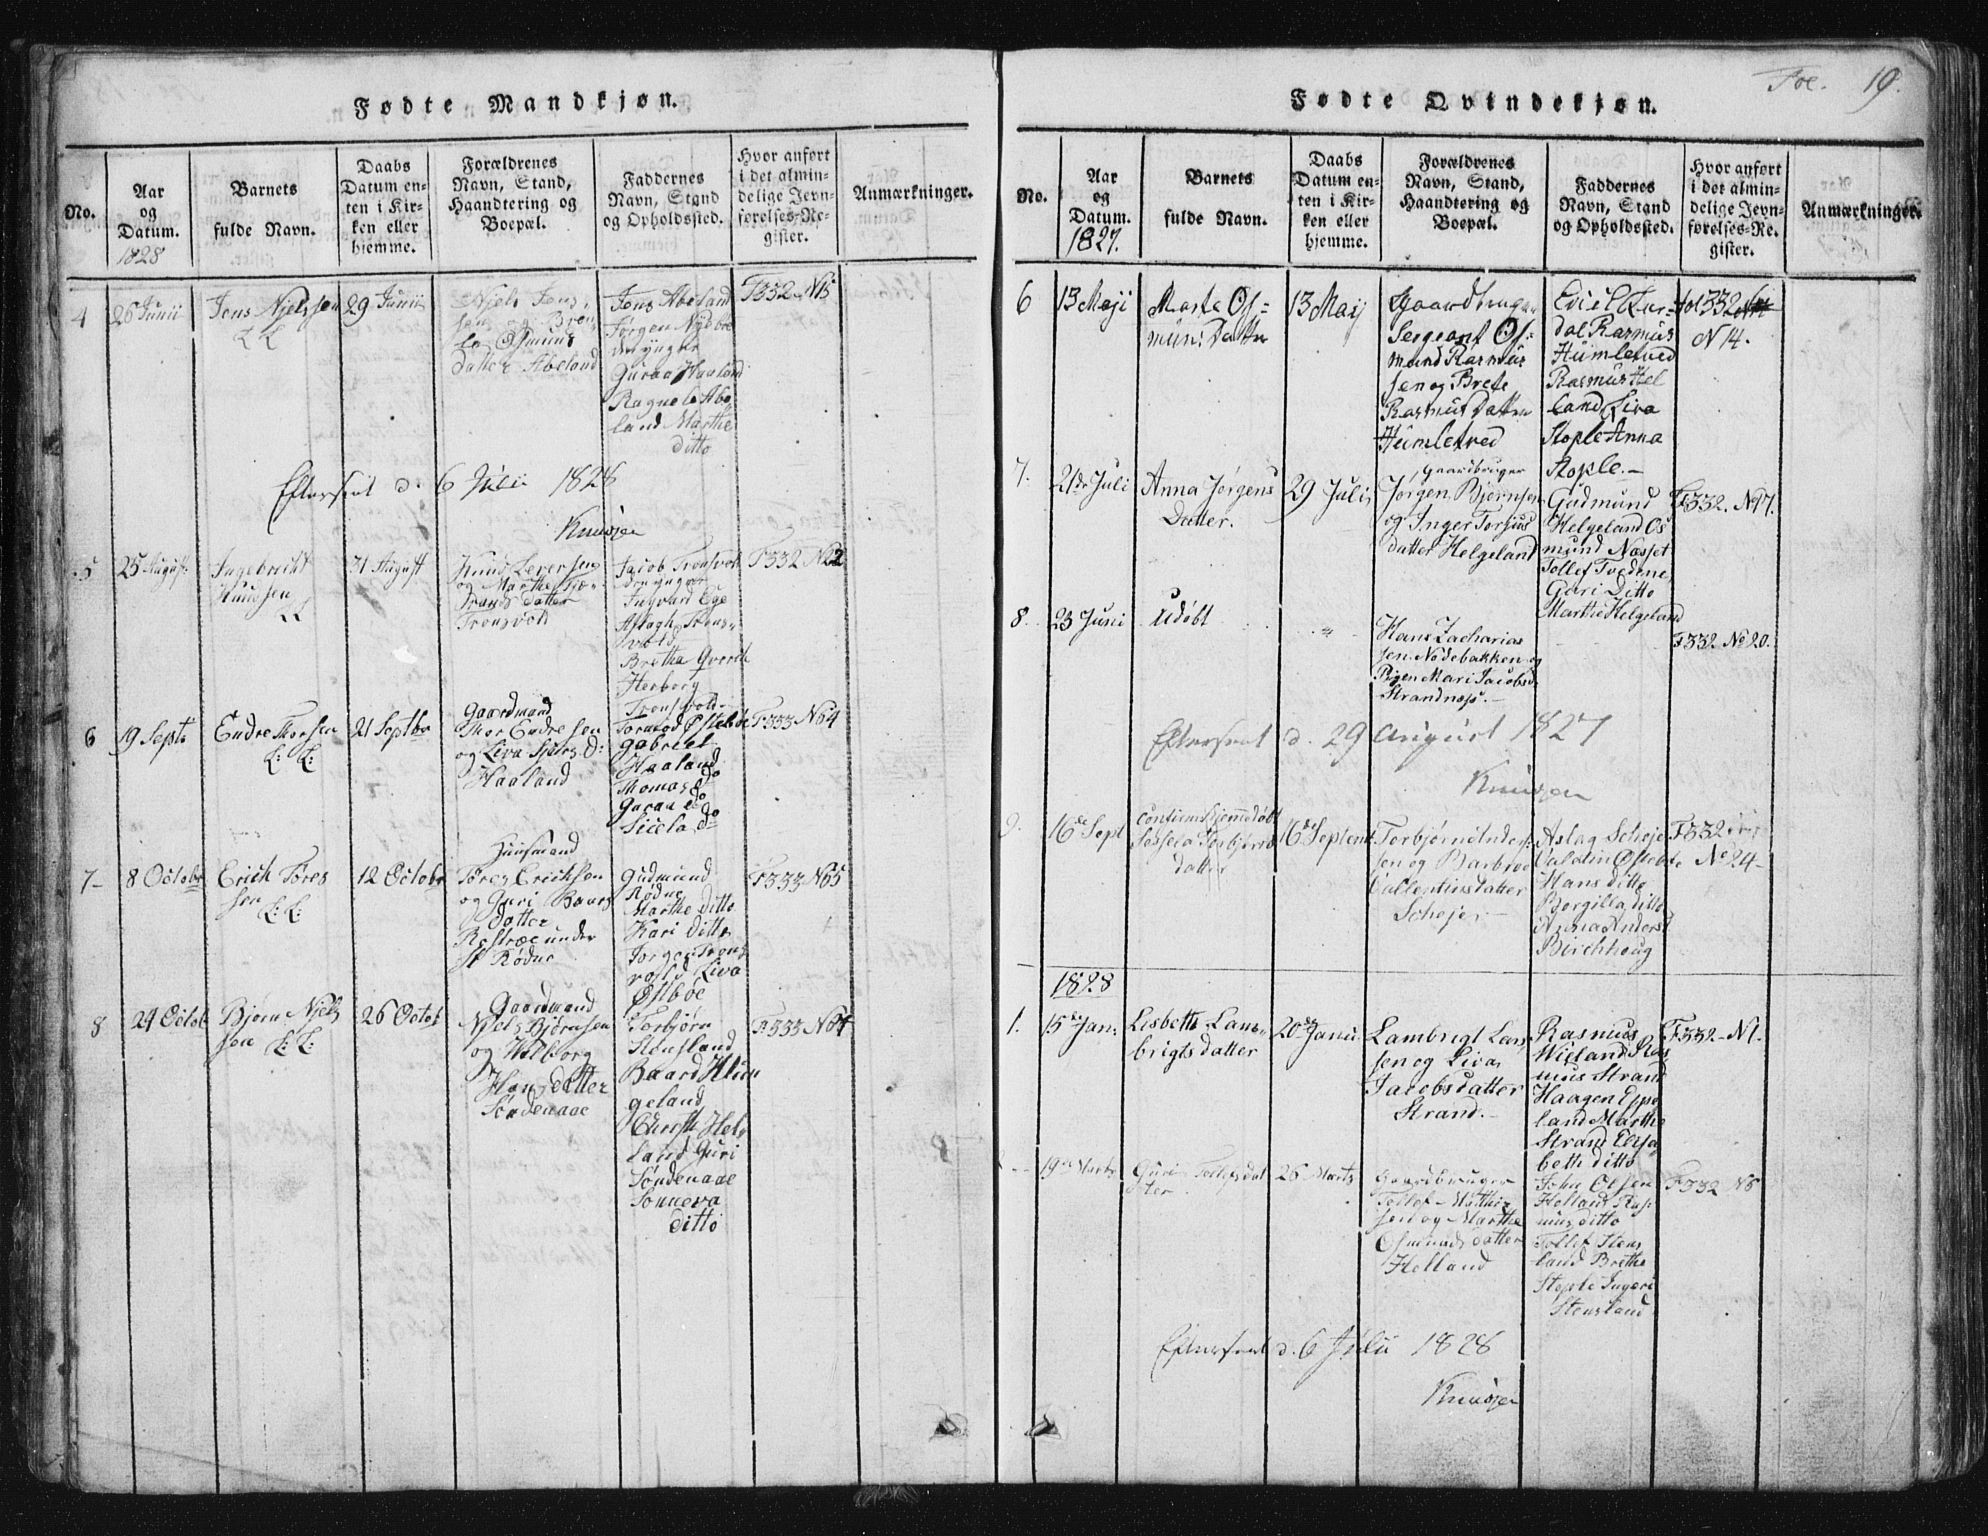 Fødte Mandkjøn.
No.
Aar
og
Datum.
1828
Barnets
fulde Navn.
Daabs
Datum en-
ten i Kir-
ken eller
hjemme.
Forældrenes
Navn, Stand,
Haandtering og
Boepæl.
Faddernes
Navn, Stand
og Opholdssted.
Hvor anført
i det almin-
delige Jevn-
førelses-Re-
gister.
Anmærkninger.
4
26 Junii
Jens Njelssen
29 Junii
Njels Jens-
sen og
Osmuns
Datter Abeland
Jens Abeland
Jørgen Nyebø
den yngre
Guroa Haaland
Ragnele Abe
land Marthe
ditto
F332 N15
Eftersent d. 6 Juli 1828
Knudsen
5
25 August
Ingebricht
Knudsen
31 August
Knud Leversen
og Marthe
Trands datter
Tronsvold
Jacob Tronsvold
den yngre
Ingvard Ege
Aslagh Trons-
vold
Bretha Qverch
Herborg
Tronsvold
F332 N22
6
19 Septb
Endre Thorsen
L: L:
21 Septbr
Gaardmand
Thor Endresen
og Liva Sjurs D:
Haaland
Tormod Østebøe
Gabriel
Haaland
Thomas do
Guraa do
Sicela do
F333 No4
7-
8 Octobr
Erich Tøres
sen
L: L:
12 Octobr
Huusmand
Tøres Ericksen
og Guri Baars
datter
Røstræe under
St Rødne
Gudmund
Rødne
Marthe ditto
Kari ditto
Jørgen Trons
vold Liva
Østbøe
F333 No5
8
24 Octob
Bjørn Njels
sen
L: L:
26 Octob
Gaardmand
Njels Bjørnsen
og Wilborg
Hans datter
Søndenaae
Torbjørn
Stensland
Baard
geland
Christi Hel
land Guri
Søndenaae
Sønneva
ditto
F333 No7
Foe. 19.
Fødte Qvindekjøn.
No.
Aar
og
Datum.
1827.
Barnets
fulde Navn.
Daabs
Datum en-
ten i Kir-
ken eller
hjemme.
Forældrenes
Navn, Stand,
Haandtering og
Boepæl.
Faddernes
Navn, Stand
og Opholdssted.
Hvor anført
i det almin-
delige Jevn-
førelses-Re-
gister.
Anmærkninger.
6
13 Maji
Marte Os-
muns Datter
13 Maij
Gaardbruger
Sergeant Os-
mund Rasmus
sen og Brete
Rasmus Datter
Humletved
dal Rasmus
Humletved
Rasmus Hel
land Liva
Stople Anna
Stople.-
fol 332
N 14.
7.
21de Juli
Anna Jørgens
Datter.
29 Juli
Gaardbruger
Jørgen Bjørnsen
og Inger Torjus
datter Helgeland
Gudmund
Helgeland Os
mund Næsset
Tollef Tvedene
Guri Ditto
Marthe Helgeland
F332. No17.
8.
23 Juni
Udøbt
Hans Zacharias
sen Nødebakken og
Pigen Mari Jacobsd
Strandnæs.-
F332. No20.
Eftersent d. 29 August 1827
Knudsen
9.
16de Sept
confirm Hjemmedøbt
Torbjørns
datter
16de Septem
Torbjørn Anders-
sen og Barbroe
Vallentinsdatter
Schejer
Aslag Scheje
Valdtin Østebøe
Hans ditto
Borgilla ditto
Anna Andersd
Birchhoug
F332
No 24-
1828
1.
15de Jan:
Lisbeth Lam-
brigts datter
20de Janu.
Lambrigt Lars
sen og Liva
Jacobs datter
Strand.-
Rasmus
Wieland Ras
mus Strand
Haagen Eppe
land Marthe
Strand Elisa
beth ditto
F332- N1.
19de Marts
Guri Tollefsdat
ter
26 Marts
Gaardbruger
Tollef Matthi-
sen og Marthe
Osmunds datter
Helland
John Olsen
Helland Ras-
mus ditto
Tollef Stens
land Brethe
Stople Ingeri
Stensland
F332 N8
Eftersent d. 6 Julii 1828
Knudsen